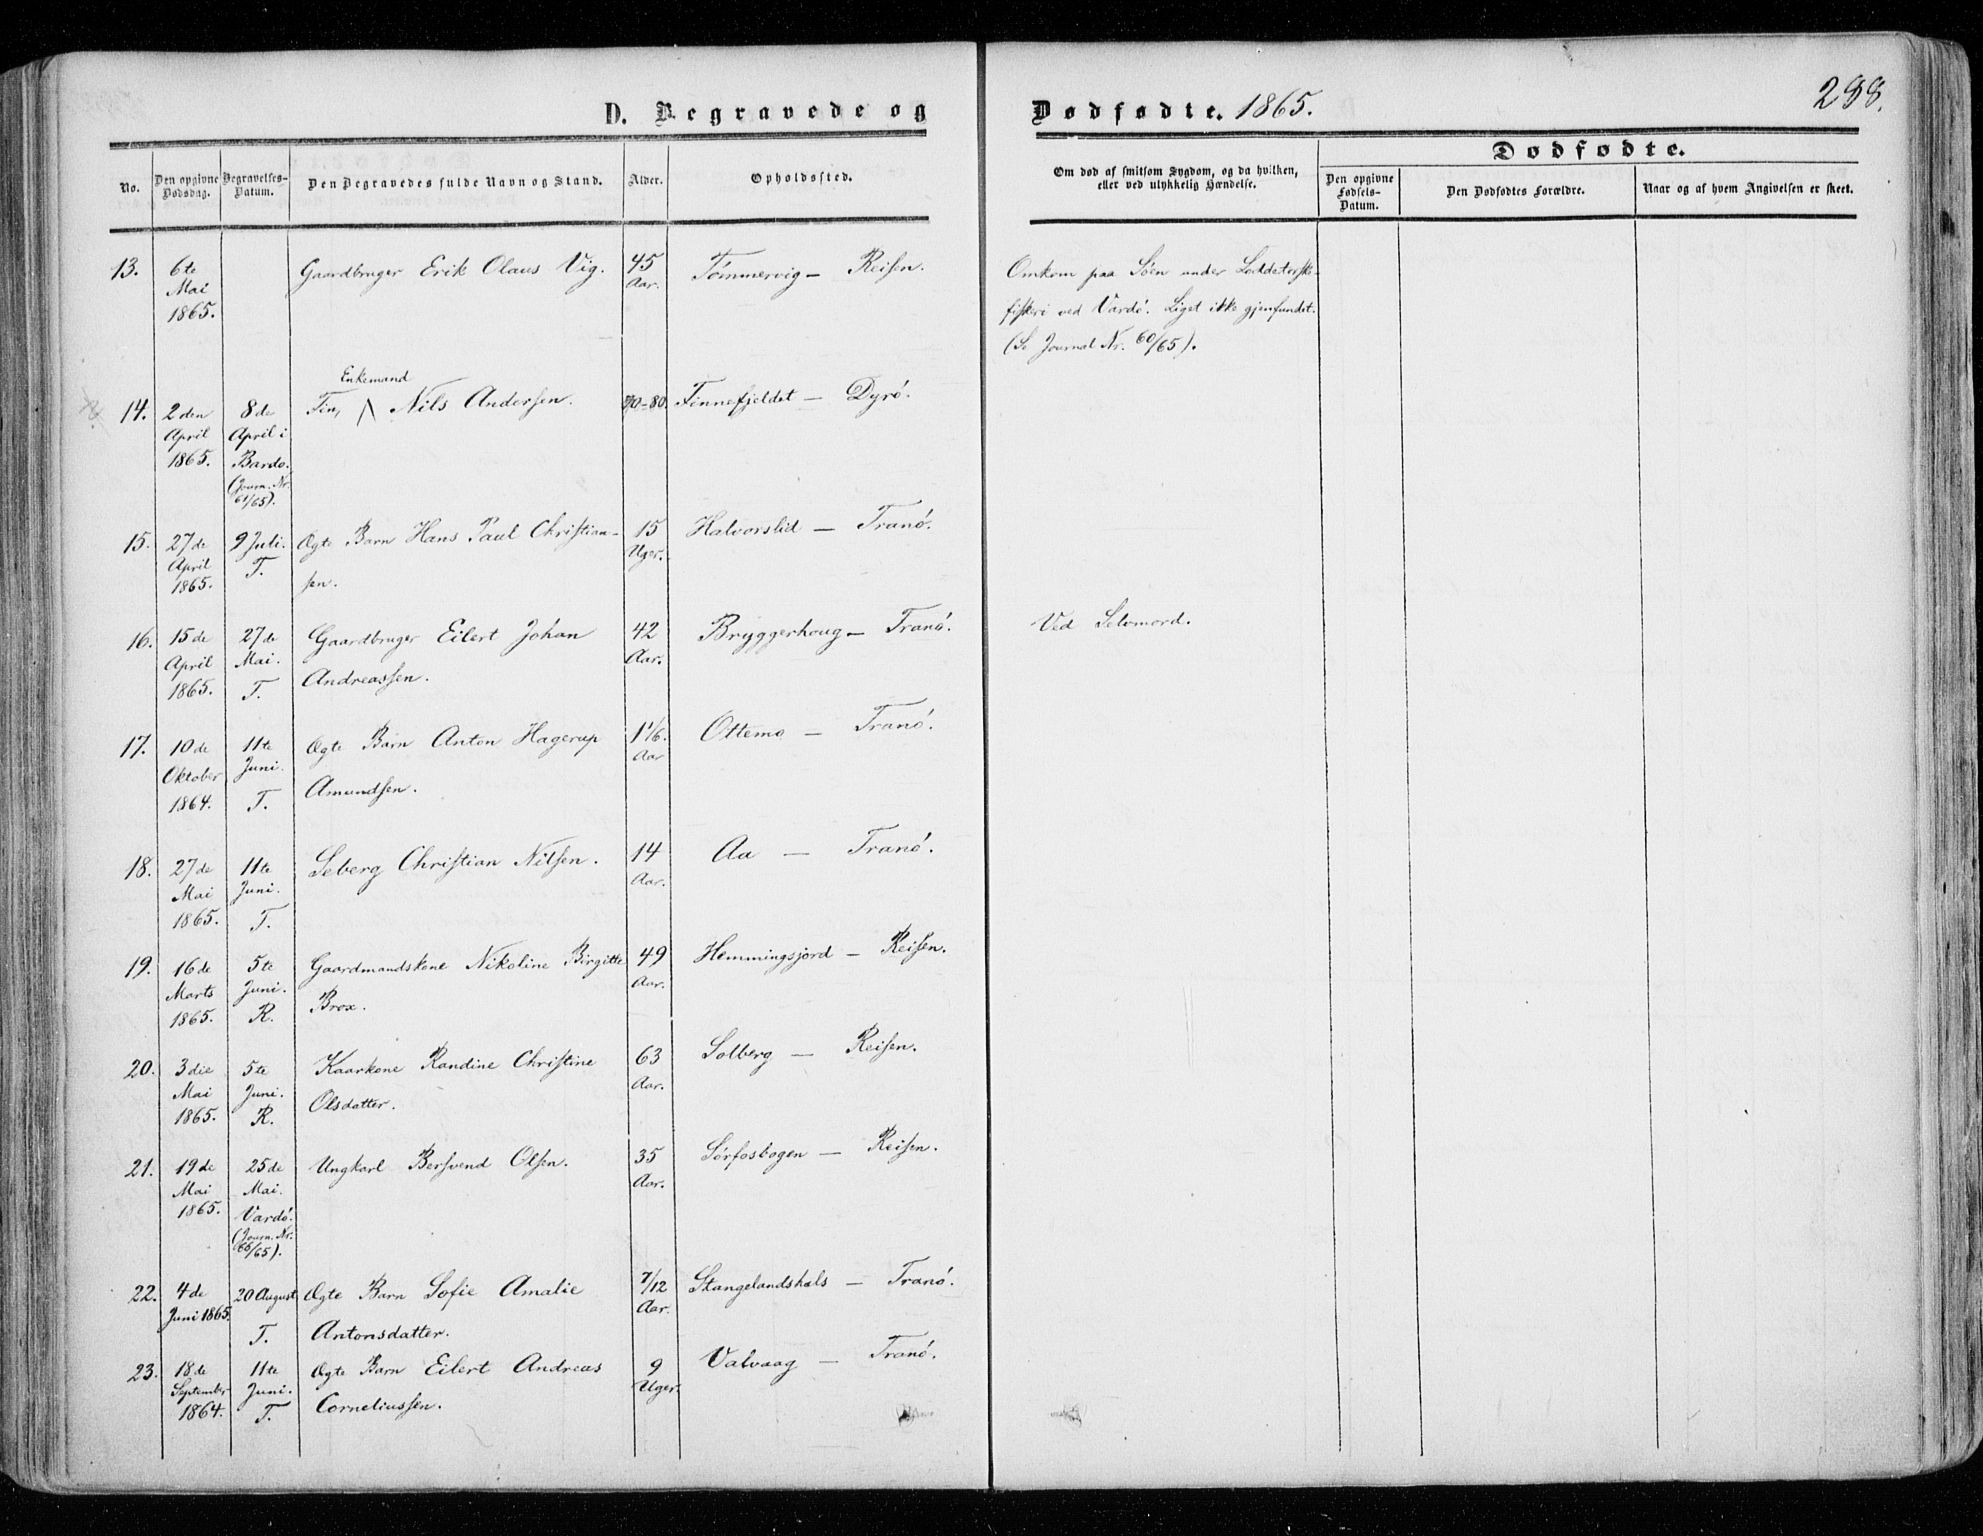 D. Begravede og Dødfødte. 1865.
288.
No.
Den opgivne Dødsdag.
Begravelses-Datum.
Den Begravedes fulde Navn og Stand.
Alder.
Opholdssted.
Om død af smitsom Sygdom, og da hvilken,
eller ved ulykkelig Hændelse.
Dødfødte.
Den opgivne Fødsels-Datum.
Den Dødfødtes Forældre.
Naar og af hvem Angivelsen er skeet.
13. 6te Mai 1865. Gaardbruger Erik Olaus Vig. 45 Aar. Tømmervig — Reisen.
Omkom paa Søen under Loddetorsk-
fiskeri ved Vardö. Liget ikke gjenfundet.
(Se Journal Nr. 60/65).
14. 2den April 1865. 8de April i Bardo. (Journ. Nr. 61/65). Fin, /\ Enkemand Nils Andersen. 70-80. Finnefjeldet — Dyrö.
15. 27de April 1865. 9 Juli. T. Ægte Barn Hans Paul Christian-
sen. 15 Uger. Halvorslid — Tranö.
16. 15de April 1865. 27de Mai. T. Gaardbruger Eilert Johan
Andreassen. 42 Aar. Bryggerhoug — Tranö. Ved Selvmord.
17. 10de Oktober 1864. 11te Juni. T. Ægte Barn Anton Hagerup
Amundsen. 1 1/6. Aar Ottemo — Tranö.
18. 27de Mai 1865. 11te Juni. T. Seberg Christian Nilsen. 14 Aar. Aa — Tranö.
19. 16de Marts 1865. 5te Juni. R. Gaardmandskone Nikoline Birgitte
Brox. 49 Aar. Hemmingsjord — Reisen.
20. 3die Mai 1865. 5te Juni. R. Kaarkone Randine Christine
Olsdatter. 63 Aar. Solberg — Reisen.
21. 19de Mai 1865. 25de Mai. Vardö. (Journ. Nr. 66/65). Ungkarl Bersvend Olsen. 35 Aar. Sörfosbogen — Reisen.
22. 4de Juni 1865. 20 August T. Ægte Barn Sofie Amalie
Antonsdatter. 7/12 Aar. Stangelandshals — Tranö.
23. 18de September 1864. 11te Juni. T. Ægte Barn Eilert Andreas
Corneliussen. 9 Uger. Valvaag — Tranö.